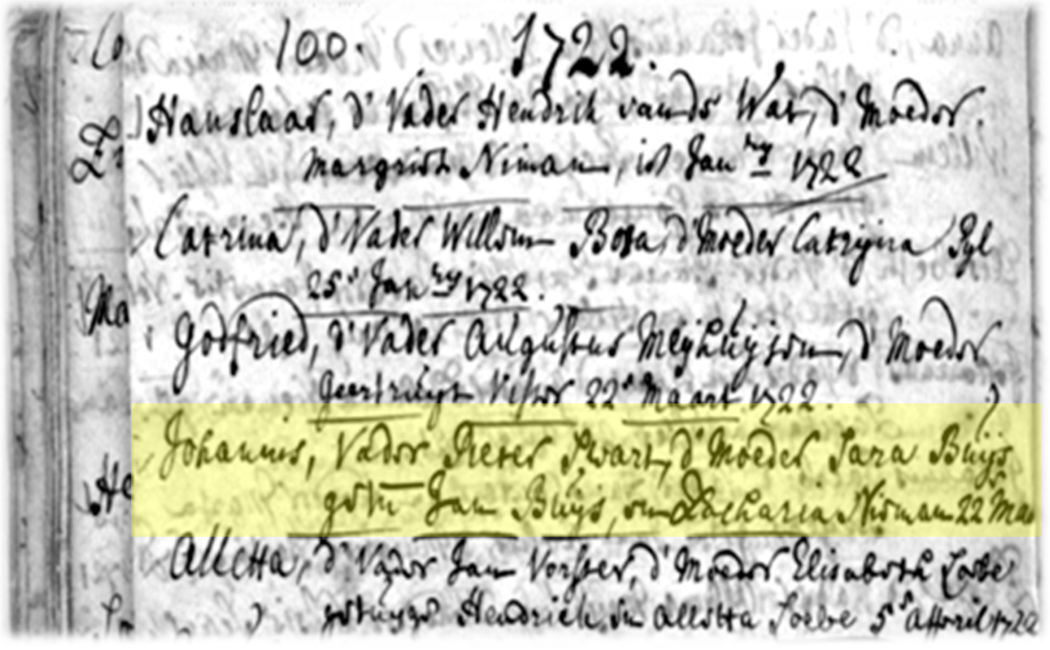 100. 1722.
Hanslaas, d' Vader Hendrik vands Wat, d' Moeder
Margriet Niman, is Jan ry 1722
Catrina, d' Vader Willem Bota, d' Moeder Catryna Pyl
25' Jan ry 1722.
Godfried, d' Vader Augustus Meyhuysen, d' Moeder
Geertruyt Visser 22' Maart 1722.
Johannis, Vader Pieter Swart, d' Moeder Sara Buys
get: Jan Buys, en Zacharia Nieman 22 Maa
Alletta, d' Vader Jan Vorster, d' Moeder Elisabeth
Hendrick en Alletta 5' April 1722
Ma
He